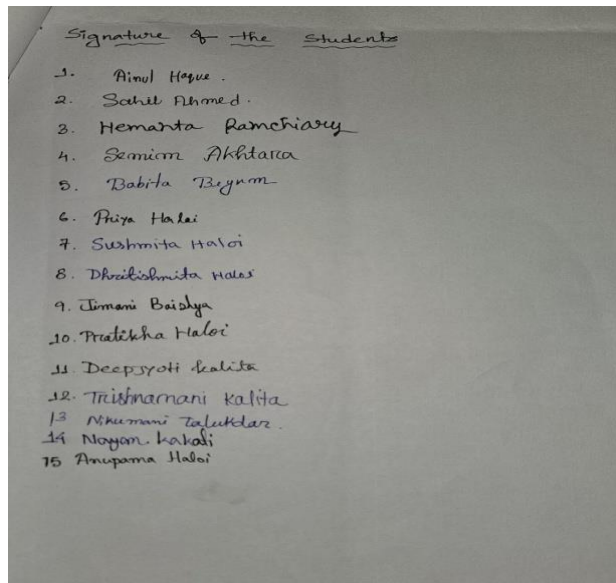 Signature of the Students
1. Ainul Haque.
2. Sahil Ahmed.
3. Hemanta Ramchiary
4. Semim Akhtara
5. Babita Begum
6. Priya Haloi
7. Sushmita Haloi
8. Dhritishmita Haloi
9. Jimani Baishya
10. Pratikha Haloi
11. Deepjyoti Kalita
12. Trishnamani Kalita
13 Nikumani Talukdar.
14 Nayan Kakati
15 Anupama Haloi